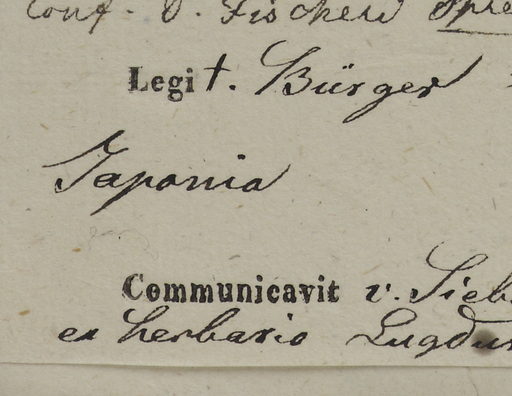 Conf. D. Fischeri Spre
Legit. Bürger
Japonia
Communicavit v. Sieb
ex herbario Lugdun